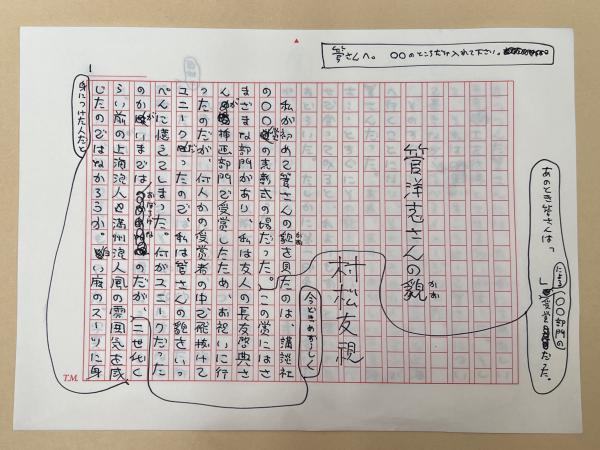 管さんへ。〇〇のところだけ入れて下さい。
あのとき管さんは、
〇〇部門の
受賞だった。
管洋志さんの貌
かお
村松友視
私が初めて管さんの貌を見たのは、講談社
かお
の〇〇賞の表彰式の場だった。この賞にはさ
まざまな部門があり、私は友人の長友啓典さ
んが挿画部門で受賞したため、お祝いに行
ったのだが、何人かの受賞者の中で飛抜けて
ユニークだったので、私は管さんの貌をいっ
ぺんに憶えてしまった。何がユニークだった
のかいまではおぼろげなのだが、二世代く
らい前の上海浪人や満州浪人風の雰囲気を感
じたのではなかろうか。い麻のスーツに身
今どきめずらしく
身につけた人だと
1
T.M.